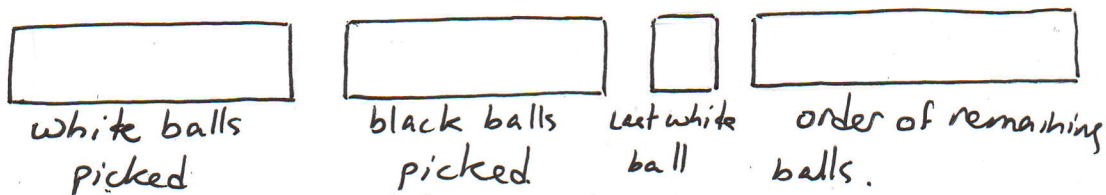 white balls
picked
black balls
picked
Last white
ball
order of remaining
balls.